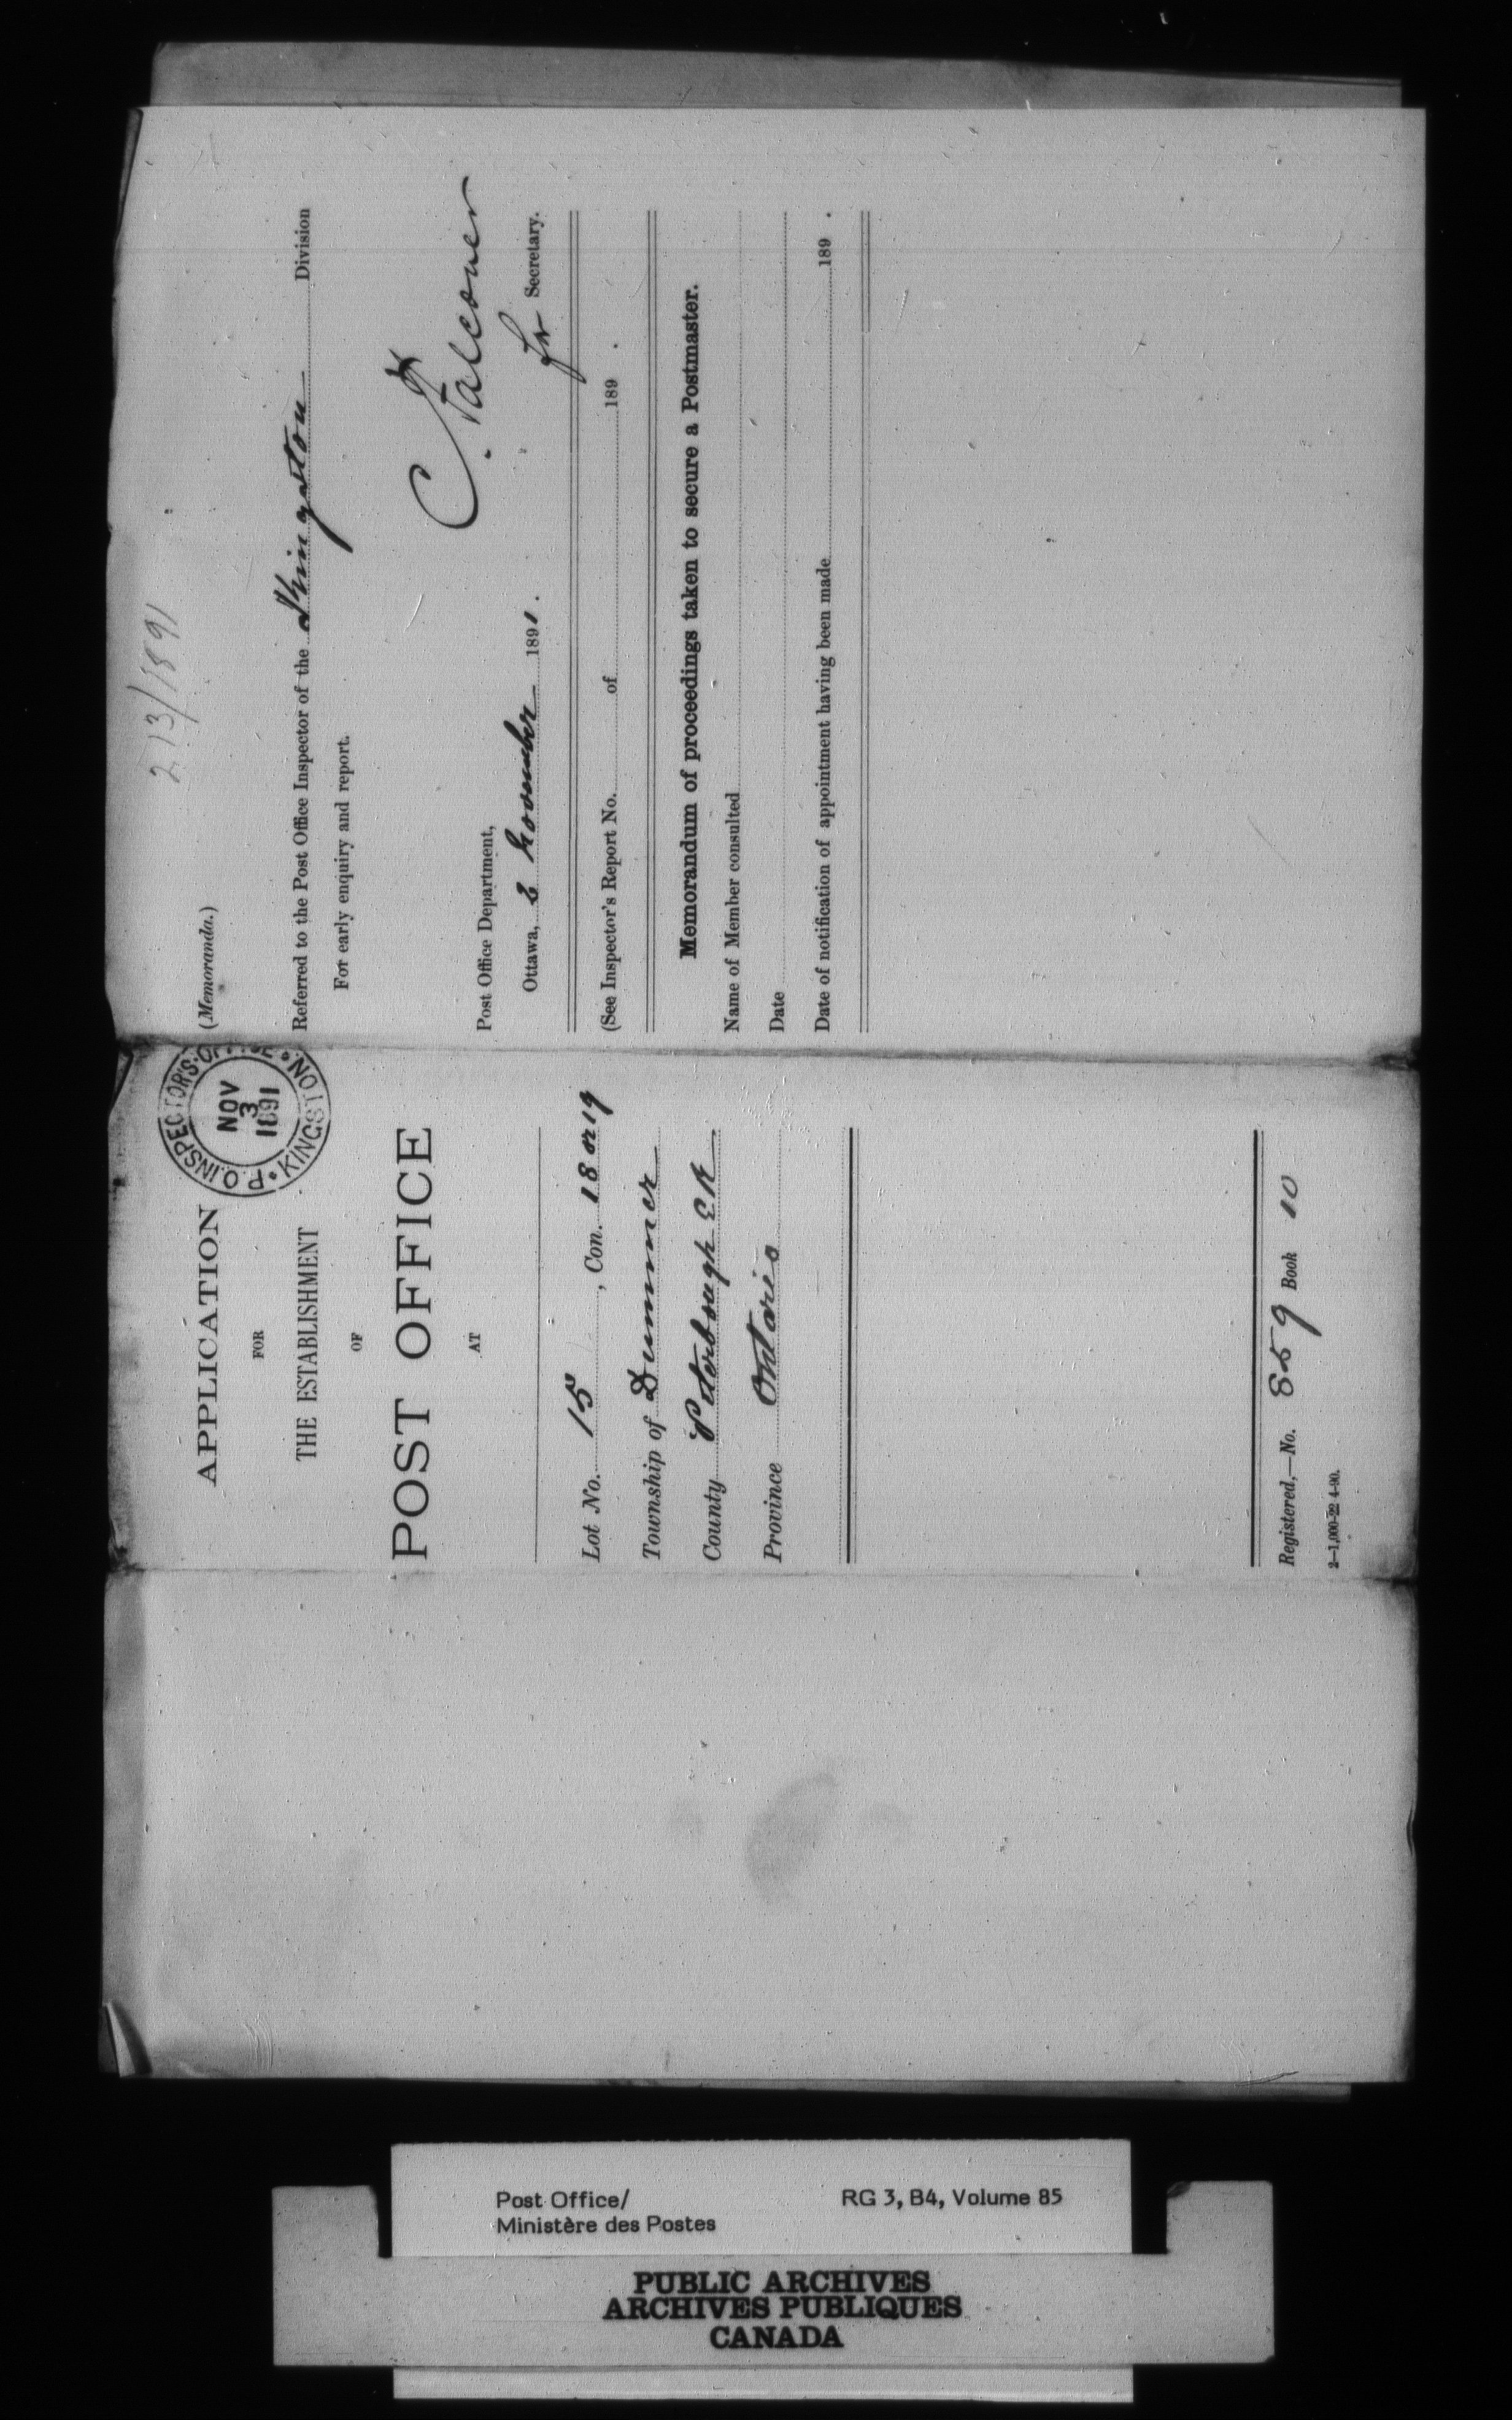 APPLICATION
FOR
THE ESTABLISHMENT
OF
POST OFFICE
AT
Lot No. 15, Con. 18 or 19
Township of Dummer
County Peterborough ER
Province Ontario
Registered,—No. 859 Book 10
2—1,000-22 4-90.
P.O. INSPECTOR'S OFFICE • KINGSTON •
NOV
3
1891
213/1891
(Memoranda.)
Referred to the Post Office Inspector of the Kingston Division
For early enquiry and report.
C. Falconer
for Secretary.
Post Office Department,
Ottawa, 2 November 1891.
(See Inspector's Report No. of 189 .
Memorandum of proceedings taken to secure a Postmaster.
Name of Member consulted
Date
Date of notification of appointment having been made 189 .
Post Office/
Ministère des Postes
RG 3, B4, Volume 85
PUBLIC ARCHIVES
ARCHIVES PUBLIQUES
CANADA